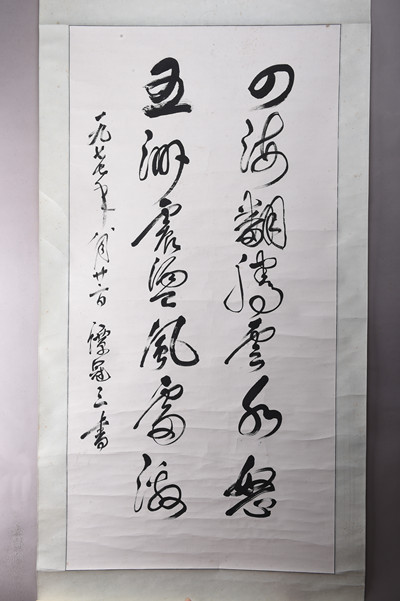 四海翻騰雲水怒
五洲震盪風雷激
一九七七年八月廿一日 三書